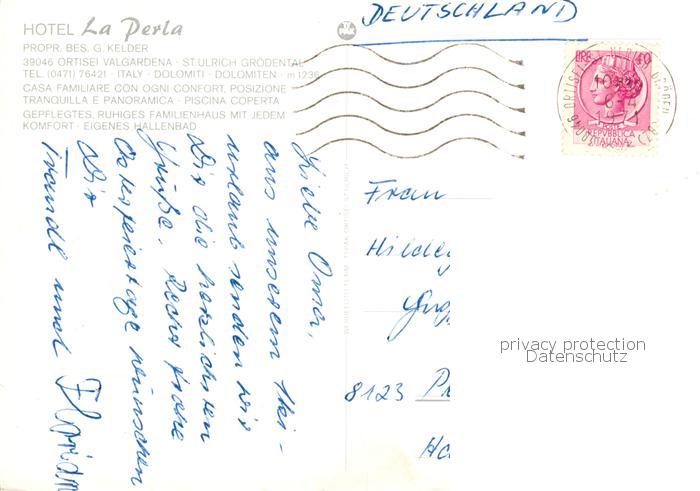 HOTEL La Perla
PROPR. BES. G. KELDER
39046 ORTISEI VALGARDENA · ST. ULRICH GRÖDENTAL
TEL. (0471) 76421 · ITALY · DOLOMITI · DOLOMITEN · m 1236
CASA FAMILIARE CON OGNI CONFORT, POSIZIONE
TRANQUILLA E PANORAMICA · PISCINA COPERTA
GEPFLEGTES, RUHIGES FAMILIENHAUS MIT JEDEM
KOMFORT · EIGENES HALLENBAD
DEUTSCHLAND
LIRE 40
REPVBBLICA
ITALIANA
Liebe Oma,
aus unserem Ski-
urlaub senden wir
Dir die herzlichsten
Grüße. Recht frohe
Osterfeiertage wünschen
Dir
Traudl und Florian
Frau
Hildeg
8123
privacy protection
Datenschutz